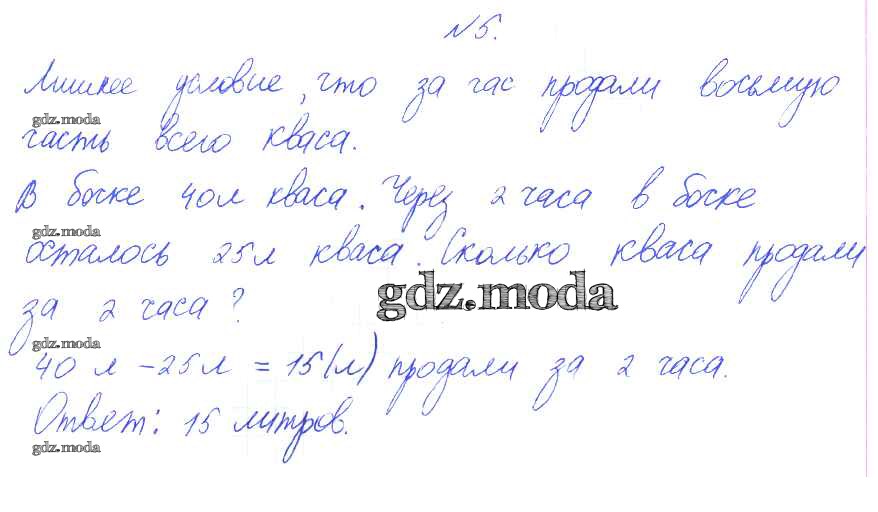 №5.
Лишнее условие, что за час продали восьмую
gdz.moda
часть всего кваса.
В бочке 40л кваса. Через 2 часа в бочке
gdz.moda
осталось 25л кваса. Сколько кваса продали
gdz.moda
за 2 часа?
gdz.moda
40 л - 25л = 15(л) продали за 2 часа.
Ответ: 15 литров.
gdz.moda